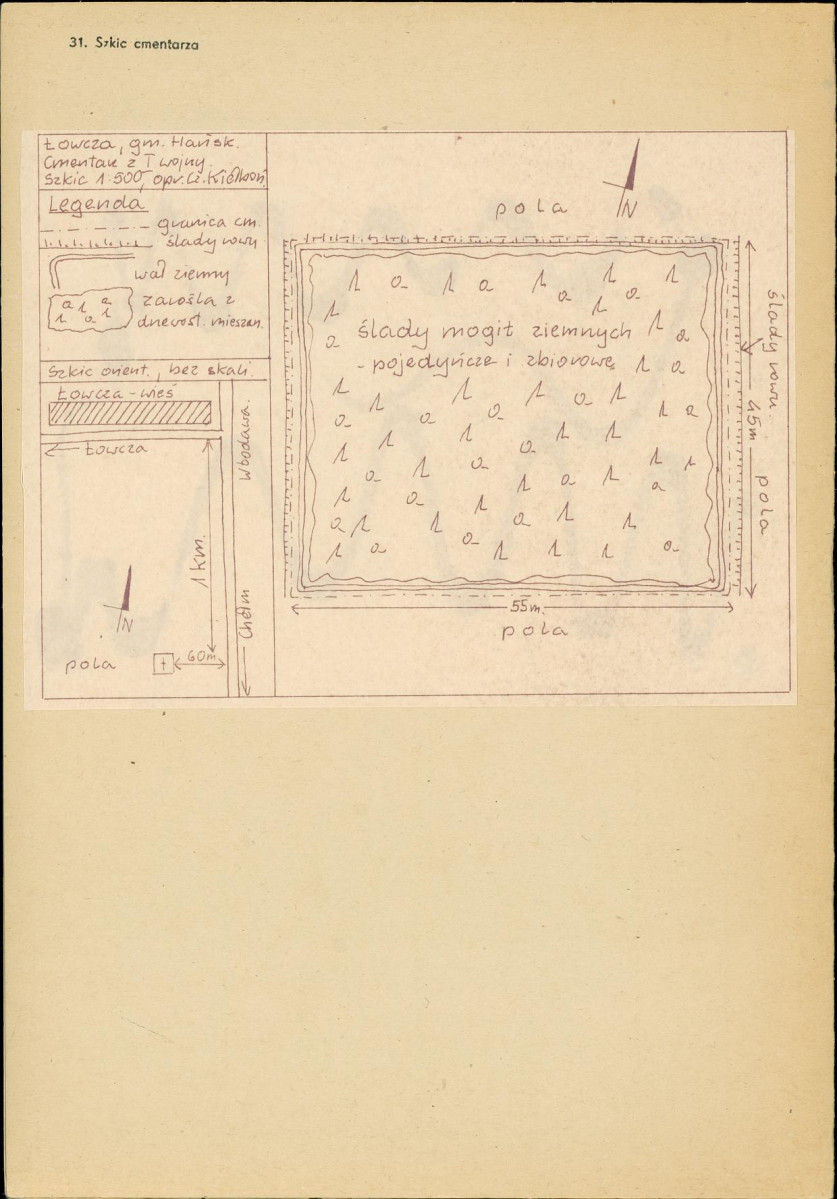 31. Szkic cmentarza
Łowcza, gm. Hańsk.
Cmentarz z I wojny.
Szkic 1:500, opr. Cz. Kiełboń
Legenda
granica cm.
ślady rowu
wał ziemny
zarośla z
drzewost. mieszan.
Szkic orient., bez skali.
Łowcza - wieś
Łowcza
Włodawa.
1 km.
Chełm
N
pola
60m
pola
N
ślady mogił ziemnych
- pojedyńcze i zbiorowe
ślady rowu.
45m
pola
55m.
pola